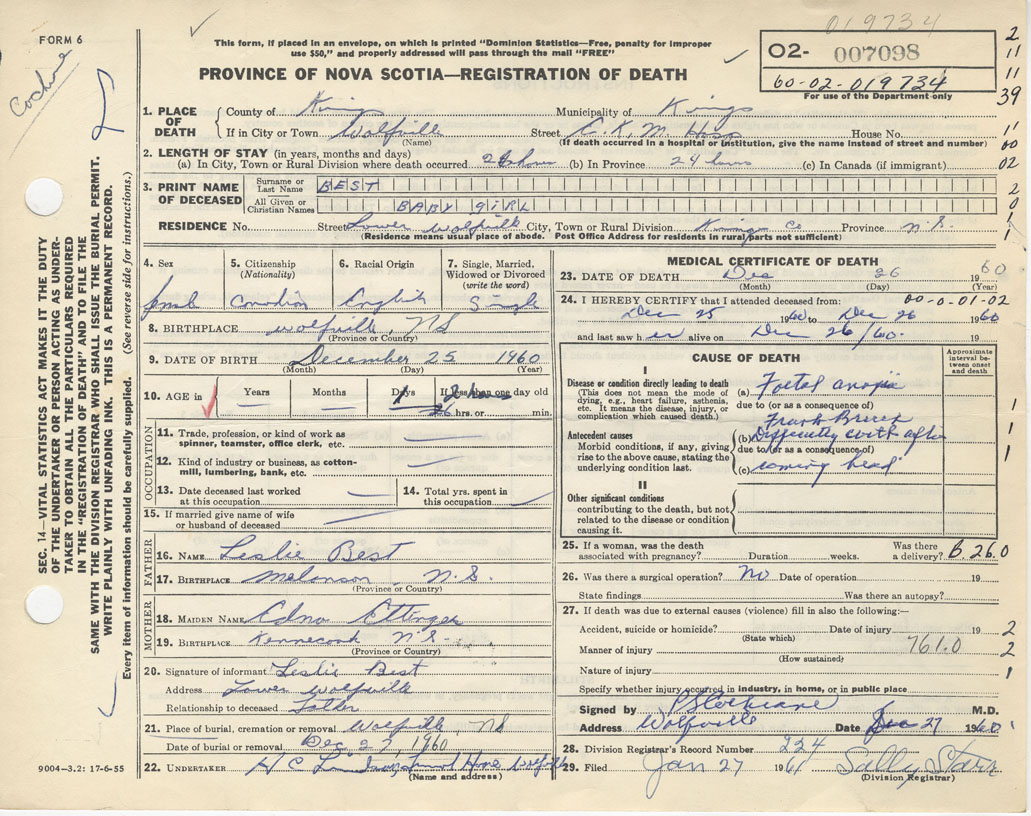 019734
FORM 6
This form, if placed in an envelope, on which is printed "Dominion Statistics—Free, penalty for improper
use $50," and properly addressed will pass through the mail "FREE"
O2- 007098
60-02-019734
For use of the Department only
PROVINCE OF NOVA SCOTIA—REGISTRATION OF DEATH
Cochrane
2
11
11
39
11
00
02
2
0
1
1
SEC. 14—VITAL STATISTICS ACT MAKES IT THE DUTY
OF THE UNDERTAKER OR PERSON ACTING AS UNDER-
TAKER TO OBTAIN ALL THE PARTICULARS REQUIRED
IN THE "REGISTRATION OF DEATH" AND TO FILE THE
SAME WITH THE DIVISION REGISTRAR WHO SHALL ISSUE THE BURIAL PERMIT.
WRITE PLAINLY WITH UNFADING INK. THIS IS A PERMANENT RECORD.
Every item of information should be carefully supplied. (See reverse side for instructions.)
1. PLACE OF DEATH County of Kings Municipality of Kings
If in City or Town Wolfville Street E. K. M. Hosp House No.
(Name) (If death occurred in a hospital or institution, give the name instead of street and number)
2. LENGTH OF STAY (in years, months and days)
(a) In City, Town or Rural Division where death occurred 24 hours (b) In Province 24 hours (c) In Canada (if immigrant)
3. PRINT NAME OF DECEASED Surname or Last Name BEST
All Given or Christian Names BABY GIRL
RESIDENCE No. Street Lower Wolfville City, Town or Rural Division Kings Co Province N.S.
(Residence means usual place of abode. Post Office Address for residents in rural parts not sufficient)
4. Sex 5. Citizenship (Nationality) 6. Racial Origin 7. Single, Married, Widowed or Divorced (write the word)
female Canadian English Single
8. BIRTHPLACE Wolfville, NS
(Province or Country)
9. DATE OF BIRTH December 25 1960
(Month) (Day) (Year)
10. AGE in Years Months Days If less than one day old
26 hrs. or min.
OCCUPATION
11. Trade, profession, or kind of work as spinner, teamster, office clerk, etc.
12. Kind of industry or business, as cotton-mill, lumbering, bank, etc.
13. Date deceased last worked at this occupation 14. Total yrs. spent in this occupation
15. If married give name of wife or husband of deceased
FATHER
16. NAME Leslie Best
17. BIRTHPLACE Melanson, N.S.
(Province or Country)
MOTHER
18. MAIDEN NAME Edna Ettinger
19. BIRTHPLACE Kennecook N.S.
(Province or Country)
20. Signature of informant Leslie Best
Address Lower Wolfville
Relationship to deceased Father
21. Place of burial, cremation or removal Wolfville, NS
Date of burial or removal Dec 27 1960
22. UNDERTAKER Funeral Home Wolfville
(Name and address)
9004—3.2: 17-6-55
MEDICAL CERTIFICATE OF DEATH
23. DATE OF DEATH Dec 26 1960
(Month) (Day) (Year)
24. I HEREBY CERTIFY that I attended deceased from: 00-0-01-02
Dec 25 1960 to Dec 26 1960
and last saw h er alive on Dec 26/60.
CAUSE OF DEATH
Approximate interval between onset and death
I
Disease or condition directly leading to death
(This does not mean the mode of dying, e.g., heart failure, asthenia, etc. It means the disease, injury, or complication which caused death.)
(a) Foetal anoxia
due to (or as a consequence of)
Frank Breech
Antecedent causes
Morbid conditions, if any, giving rise to the above cause, stating the underlying condition last.
(b) Difficulty with after
due to (or as a consequence of)
(c) coming head
1
1
1
II
Other significant conditions
contributing to the death, but not related to the disease or condition causing it.
25. If a woman, was the death associated with pregnancy? Duration weeks. Was there a delivery? 6.260
26. Was there a surgical operation? No Date of operation 19
State findings Was there an autopsy?
27. If death was due to external causes (violence) fill in also the following:—
Accident, suicide or homicide? Date of injury 19 2
(State which)
Manner of injury 761.0 2
(How sustained)
Nature of injury 1
Specify whether injury occurred in industry, in home, or in public place
Signed by P S Cochrane M.D.
Address Wolfville Date Dec 27 1960
28. Division Registrar's Record Number 224
29. Filed Jan 27 1961 Sally Starr
(Division Registrar)